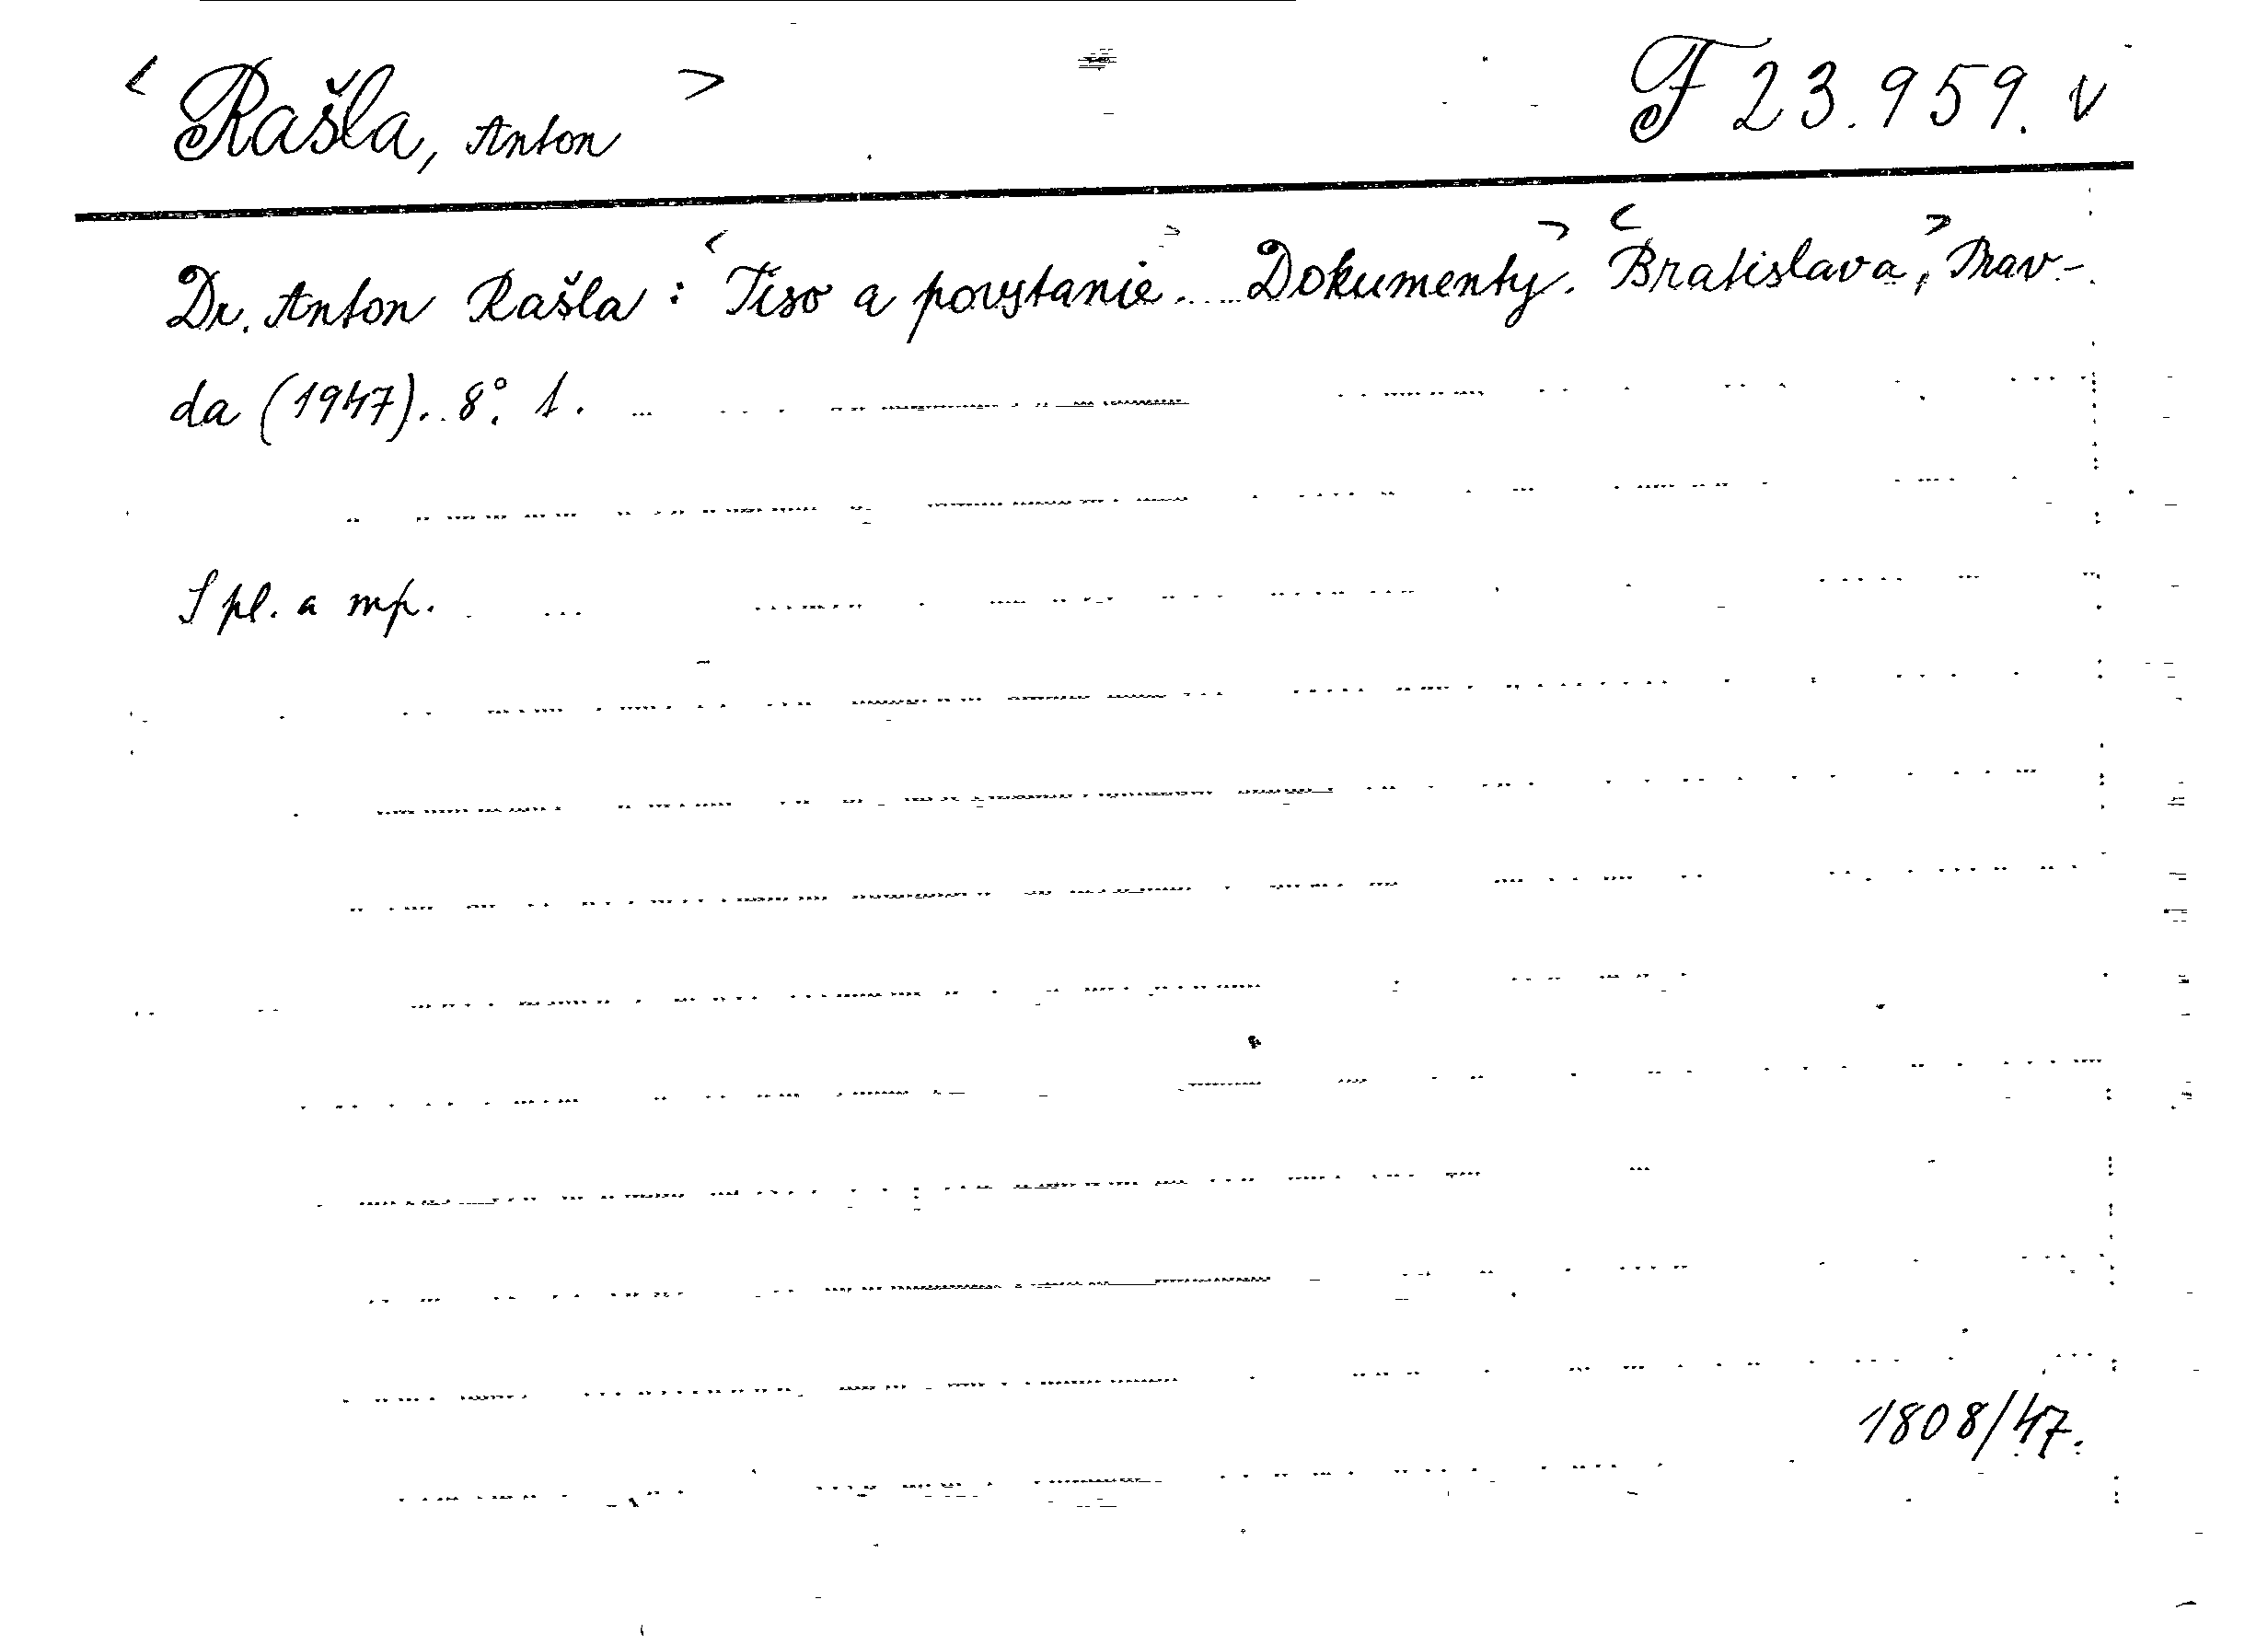 < Rašla, Anton > F 23.959. v
Dr. Anton Rašla: <Tiso a povstanie>. Dokumenty>. <Bratislava>, Prav-
da (1947). 8°. 1.
S pl. a mp.
1808/47.